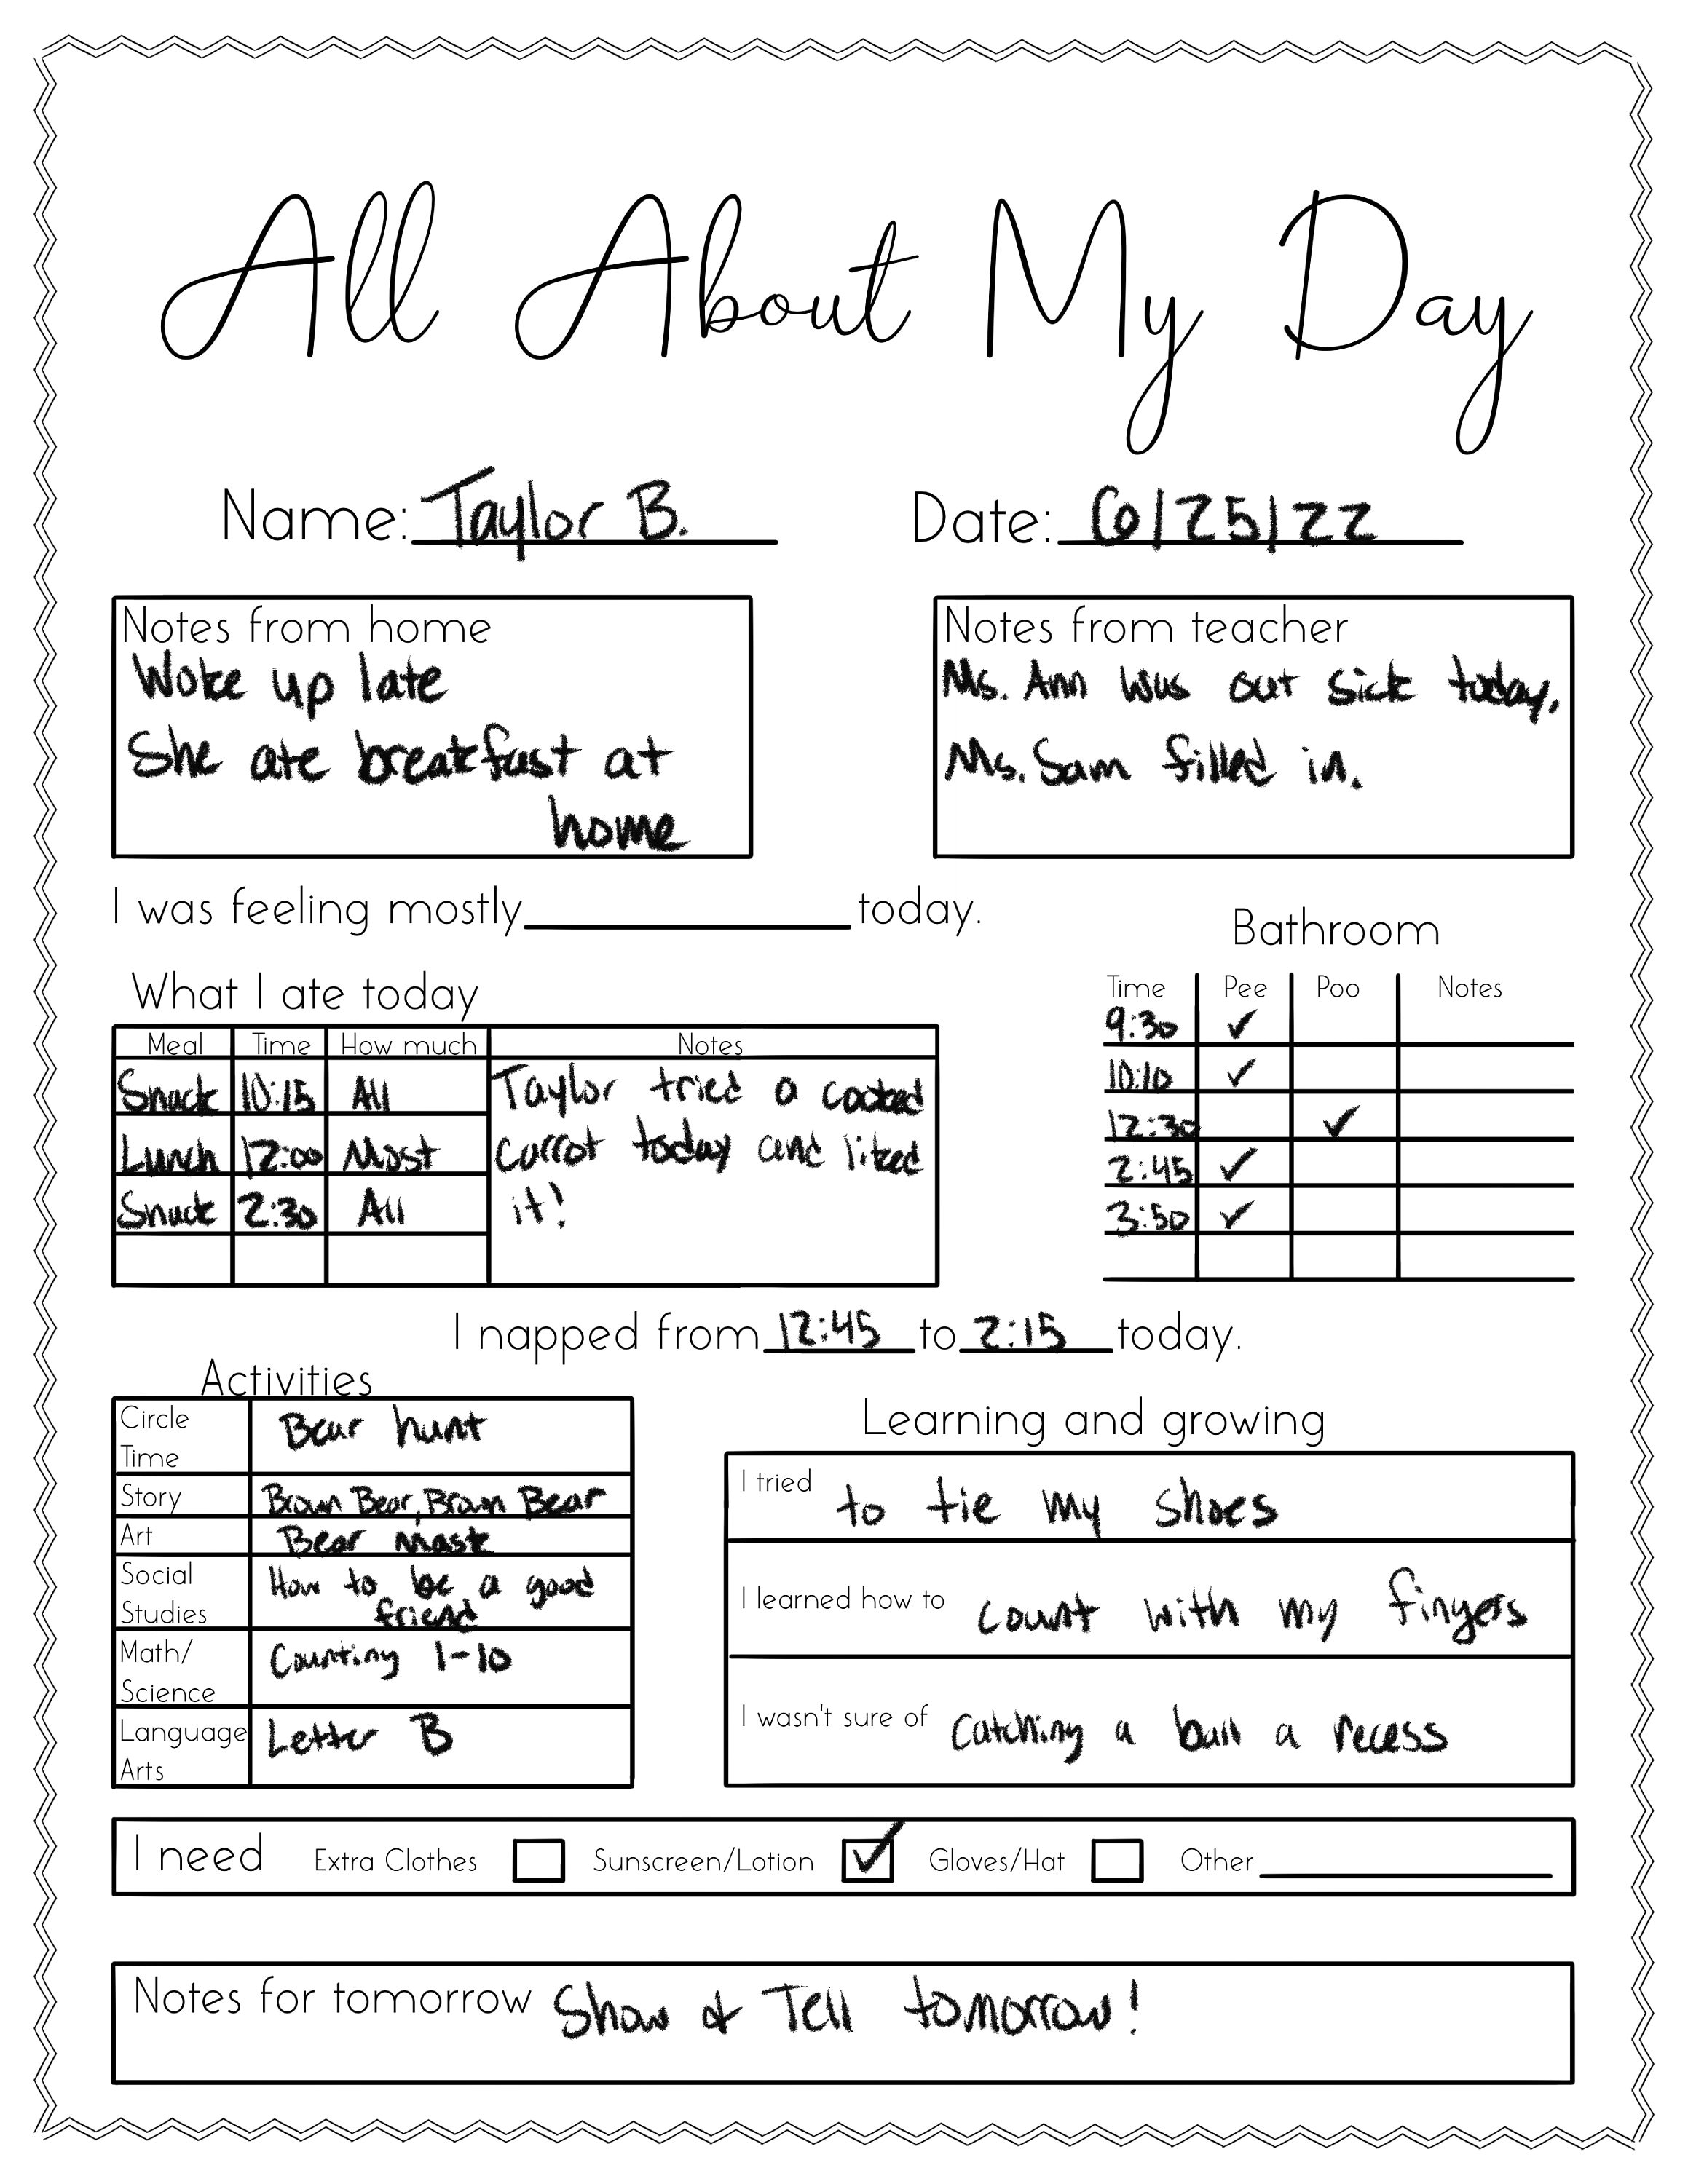 All About My Day
Name: Taylor B. Date: 6/25/22
Notes from home
Woke up late
She ate breakfast at
home
Notes from teacher
Ms. Ann was out sick today.
Ms. Sam filled in.
I was feeling mostly today.
What I ate today
Meal Time How much Notes
Snack 10:15 All
Lunch 12:00 Most
Snack 2:30 All
Taylor tried a cooked
carrot today and liked
it!
Bathroom
Time Pee Poo Notes
9:30 ✓
10:10 ✓
12:30 ✓
2:45 ✓
3:50 ✓
I napped from 12:45 to 2:15 today.
Activities
Circle
Time
Bear hunt
Story Brown Bear, Brown Bear
Art Bear mask
Social
Studies
How to be a good
friend
Math/
Science
Counting 1-10
Language
Arts
Letter B
Learning and growing
I tried to tie my shoes
I learned how to count with my fingers
I wasn't sure of Catching a ball a recess
I need Extra Clothes Sunscreen/Lotion ✓ Gloves/Hat Other
Notes for tomorrow Show & Tell tomorrow!